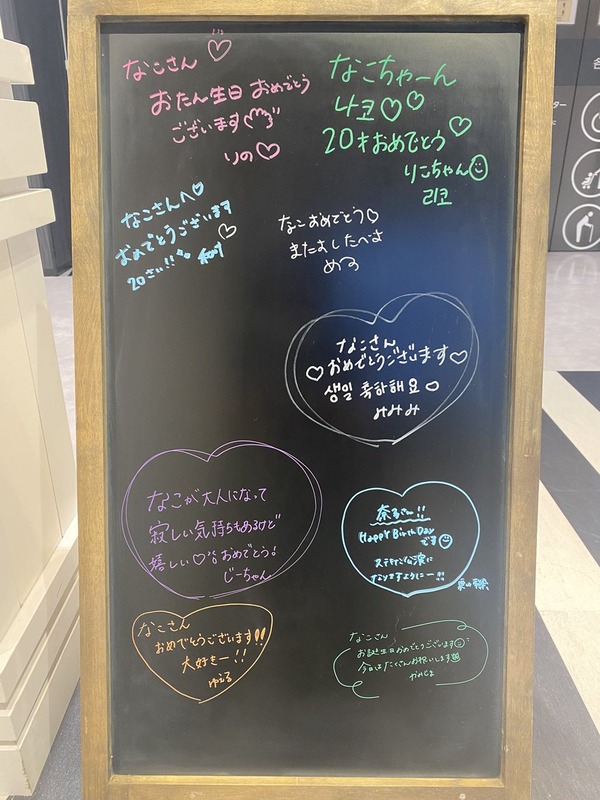 なこさん♡
おたん生日 おめでとう
ございます
りの♡
なこちゃーん
나코♡♡
20才おめでとう♡
りこちゃん
리코
なこさんへ♡
おめでとうございます
20さい!!
なこおめでとう♡
またおしたべよ
める
なこさん
♡おめでとうございます♡
생일 축하해요♡
みみみ
なこが大人になって
寂しい気持ちもあるけど
嬉しい♡おめでとう!
じーちゃん
奈子さん!!
Happy BirthDay
です
ステキな1年に
なりますようにー!!
なこさん
おめでとうございます!!
大好きー!!
ゆえる
なこさん
お誕生日おめでとうございます
今日はたくさんお祝いします